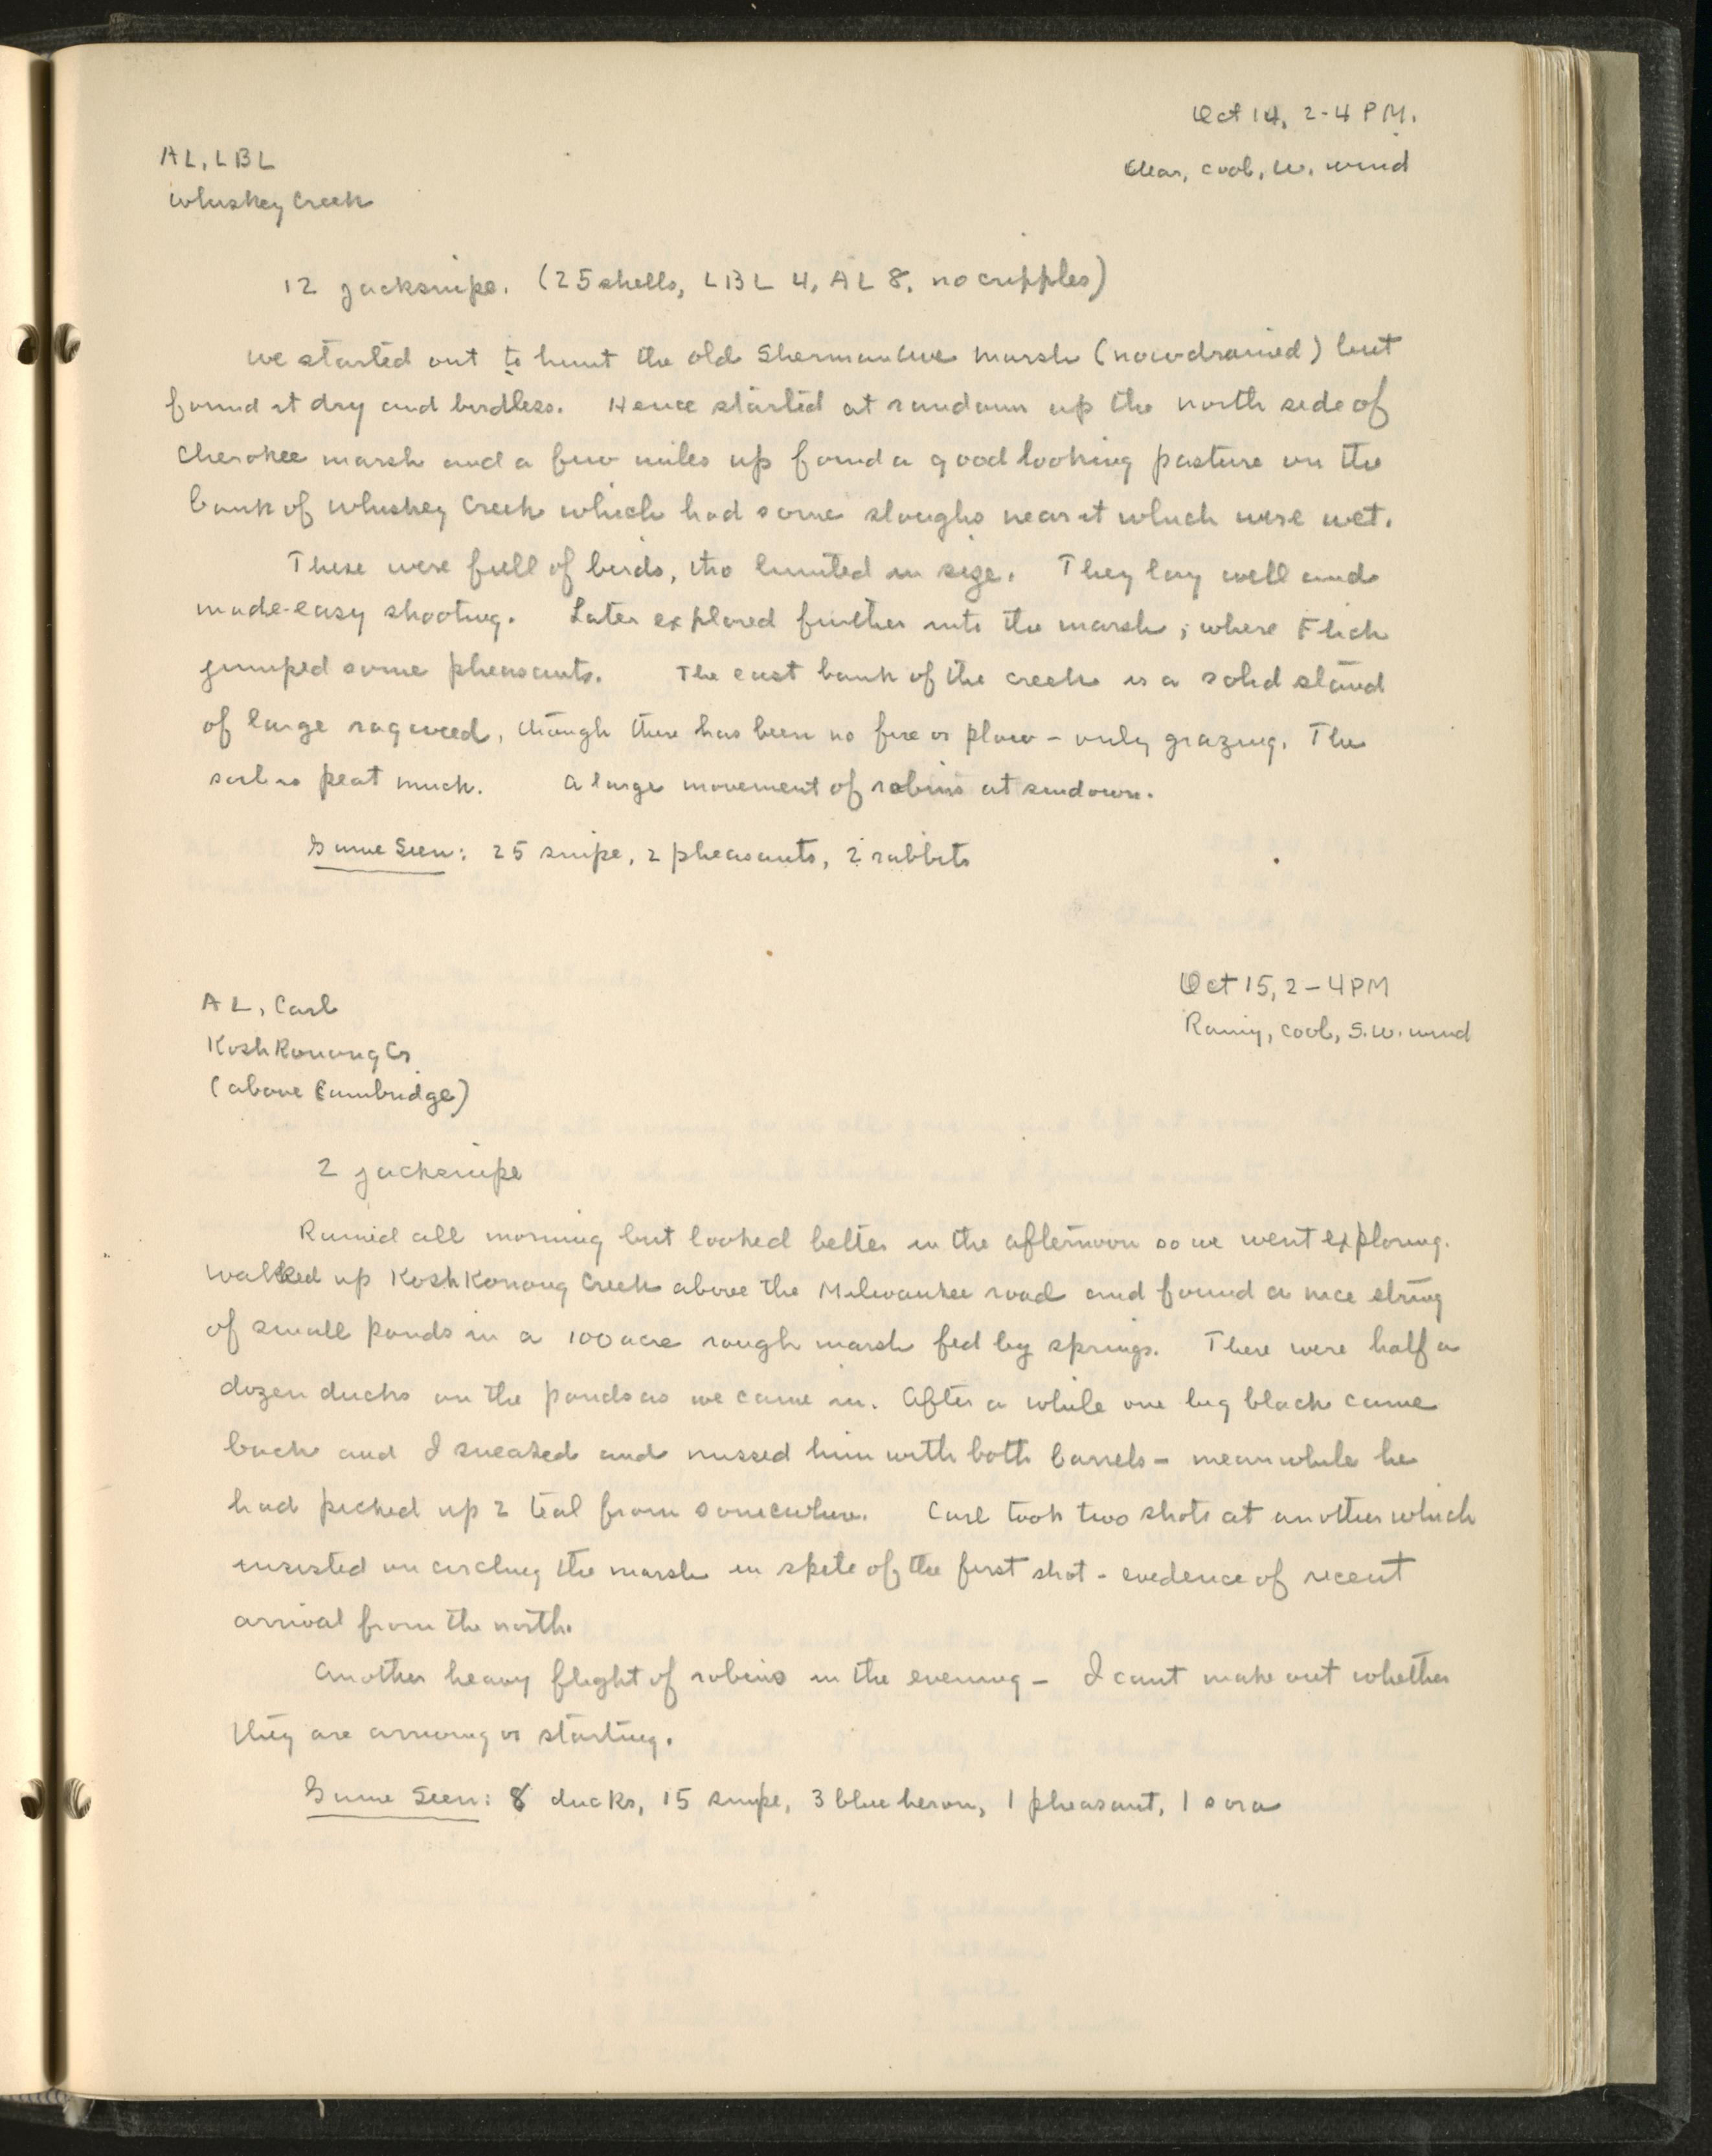 Oct 14, 2-4 PM.
AL, LBL
Clear, cool, W. wind
Whiskey Creek
12 jacksnipe. (25 shells, LBL 4, AL 8, no cripples)
We started out to hunt the old Sherman Ave marsh (now drained) but
found it dry and birdless. Hence started at random up the north side of
Cherokee marsh and a few miles up found a good looking pasture on the
bank of Whiskey Creek which had some sloughs near it which were wet.
These were full of birds, tho limited in size. They lay well and
made easy shooting. Later explored further into the marsh, where Flick
jumped some pheasants. The east bank of the creek is a solid stand
of large ragweed, though there has been no fire or plow - only grazing. The
soil is peat muck. A large movement of robins at sundown.
Game Seen: 25 snipe, 2 pheasants, 2 rabbits
Oct 15, 2-4 PM
AL, Carl
Rainy, cool, S.W. wind
Koshkonong Cr
(above Cambridge)
2 jacksnipe
Rained all morning but looked better in the afternoon so we went exploring.
Walked up Koshkonong Creek above the Milwaukee road and found a nice string
of small ponds in a 100 acre rough marsh fed by springs. There were half a
dozen ducks on the ponds as we came in. After a while one big black came
back and I sneaked and missed him with both barrels - meanwhile he
had picked up 2 teal from somewhere. Carl took two shots at another which
insisted on circling the marsh in spite of the first shot - evidence of recent
arrival from the north.
Another heavy flight of robins in the evening - I cant make out whether
they are arriving or starting.
Game Seen: 8 ducks, 15 snipe, 3 blue heron, 1 pheasant, 1 sora